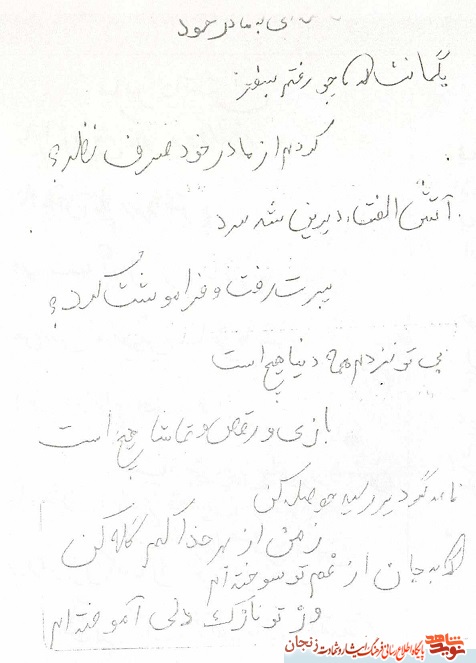 به مادر خود
یگمانت که چو رفتم بسفر
کردم از مادر خود صرف نظر؟
آتش الفت دیرین شد سرد
پسرت رفت و فراموشت کرد؟
بی تو نزدم همه دنیا هیچ است
بازی و رقص و تماشا هیچ است
نامه گر دیر رسید حوصله کن
ز من از بهر خدا کم گله کن
که به جان از غم تو سوخته ام
وز تو نازک دلی آموخته ام
نوید شاهد
پایگاه اطلاع رسانی فرهنگ ایثار و شهادت زنجان